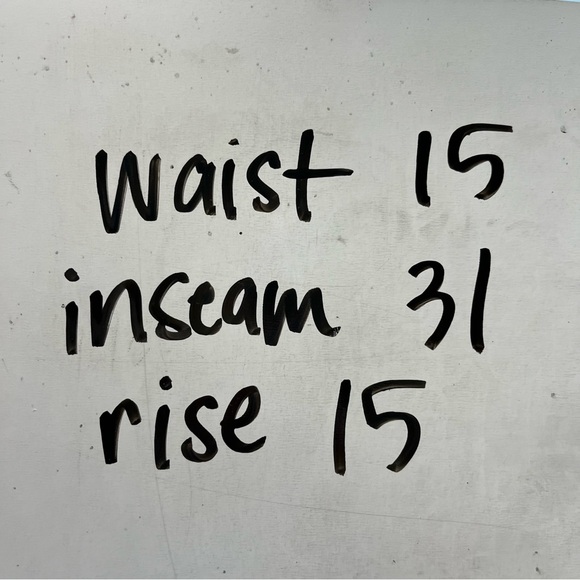 waist 15
inseam 31
rise 15